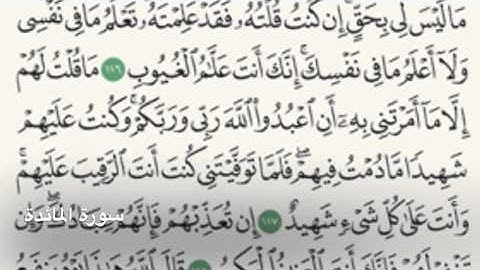 مَا لَيْسَ لِى بِحَقٍّ ۚ إِن كُنتُ قُلْتُهُۥ فَقَدْ عَلِمْتَهُۥ ۚ تَعْلَمُ مَا فِى نَفْسِى
وَلَآ أَعْلَمُ مَا فِى نَفْسِكَ ۚ إِنَّكَ أَنتَ عَلَّٰمُ ٱلْغُيُوبِ ١١٦ مَا قُلْتُ لَهُمْ
إِلَّا مَآ أَمَرْتَنِى بِهِۦٓ أَنِ ٱعْبُدُوا۟ ٱللَّهَ رَبِّى وَرَبَّكُمْ ۚ وَكُنتُ عَلَيْهِمْ
شَهِيدًا مَّا دُمْتُ فِيهِمْ ۖ فَلَمَّا تَوَفَّيْتَنِى كُنتَ أَنتَ ٱلرَّقِيبَ عَلَيْهِمْ ۚ
وَأَنتَ عَلَىٰ كُلِّ شَىْءٍ شَهِيدٌ ١١٧ إِن تُعَذِّبْهُمْ فَإِنَّهُمْ
سورة المائدة